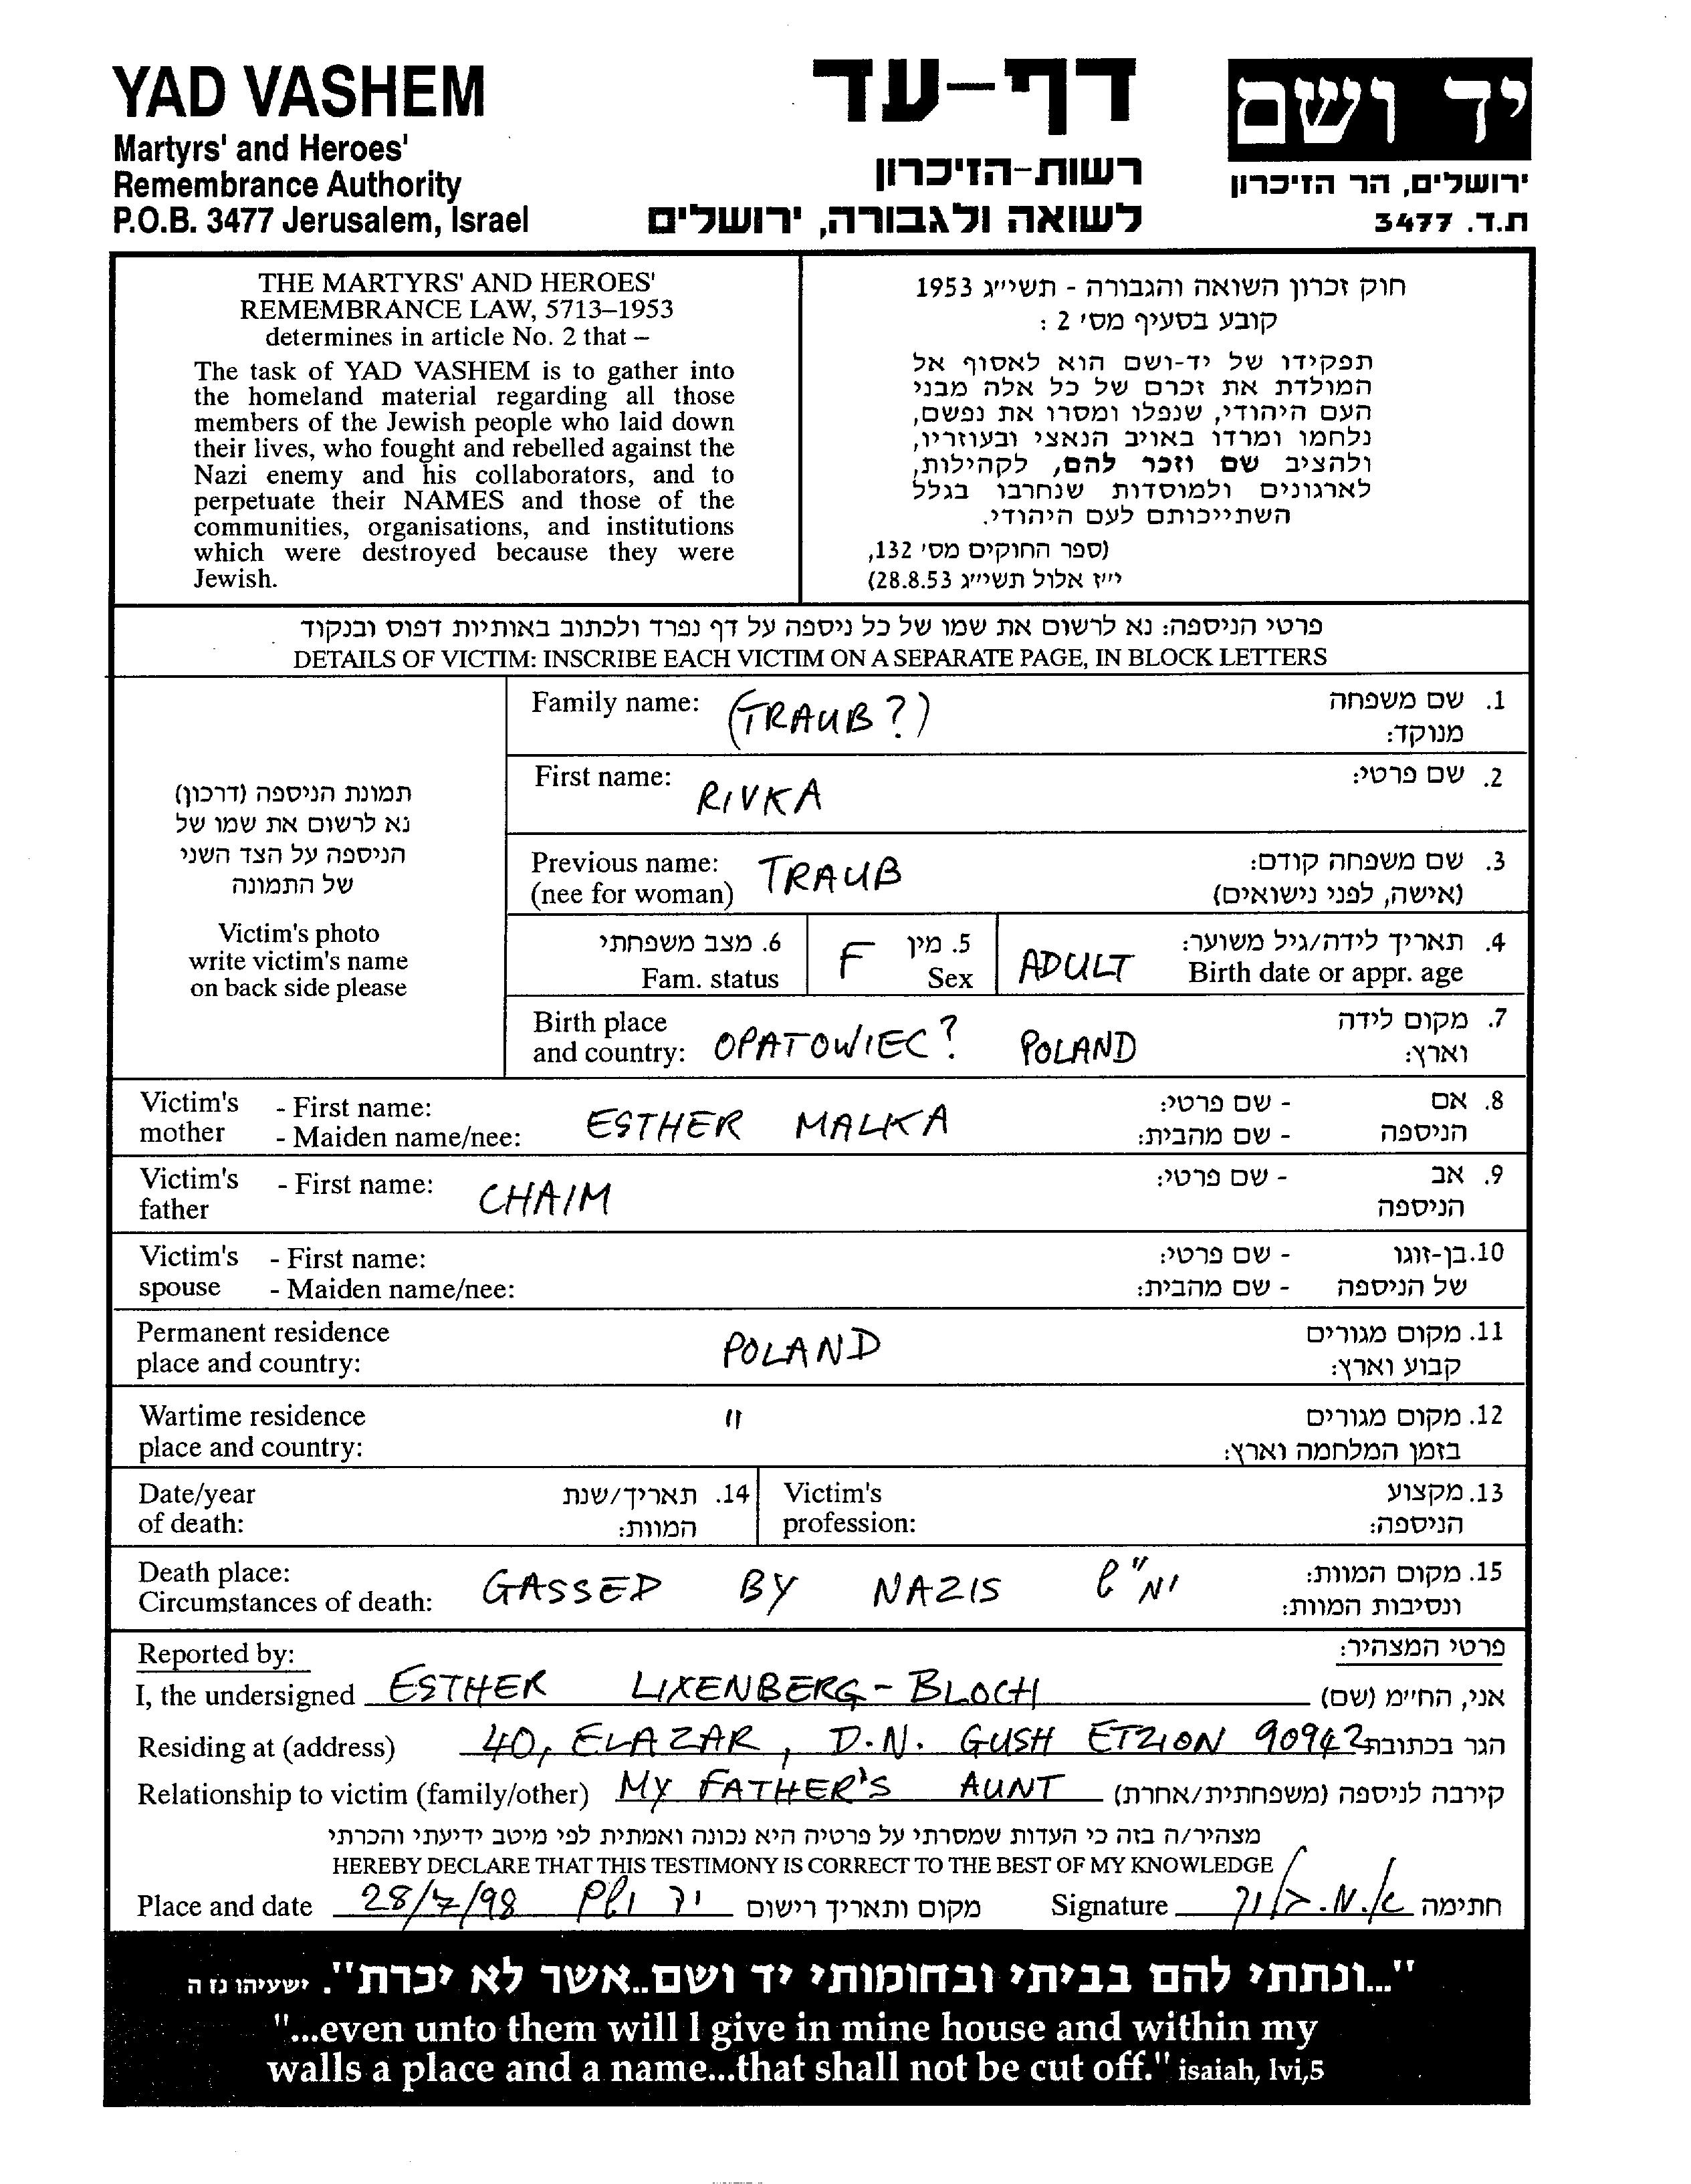 YAD VASHEM
Martyrs' and Heroes'
Remembrance Authority
P.O.B. 3477 Jerusalem, Israel
דף-עד
רשות-הזיכרון
לשואה ולגבורה, ירושלים
יד ושם
ירושלים, הר הזיכרון
ת.ד. 3477
THE MARTYRS' AND HEROES'
REMEMBRANCE LAW, 5713–1953
determines in article No. 2 that –
The task of YAD VASHEM is to gather into
the homeland material regarding all those
members of the Jewish people who laid down
their lives, who fought and rebelled against the
Nazi enemy and his collaborators, and to
perpetuate their NAMES and those of the
communities, organisations, and institutions
which were destroyed because they were
Jewish.
חוק זכרון השואה והגבורה - תשי״ג 1953
קובע בסעיף מס' 2 :
תפקידו של יד-ושם הוא לאסוף אל
המולדת את זכרם של כל אלה מבני
העם היהודי, שנפלו ומסרו את נפשם,
נלחמו ומרדו באויב הנאצי ובעוזריו,
ולהציב שם וזכר להם, לקהילות,
לארגונים ולמוסדות שנחרבו בגלל
השתייכותם לעם היהודי.
(ספר החוקים מס' 132,
י״ז אלול תשי״ג 28.8.53)
פרטי הניספה: נא לרשום את שמו של כל ניספה על דף נפרד ולכתוב באותיות דפוס ובנקוד
DETAILS OF VICTIM: INSCRIBE EACH VICTIM ON A SEPARATE PAGE, IN BLOCK LETTERS
תמונת הניספה (דרכון)
נא לרשום את שמו של
הניספה על הצד השני
של התמונה
Victim's photo
write victim's name
on back side please
Family name: (TRAUB?) 1. שם משפחה
מנוקד:
First name: RIVKA 2. שם פרטי:
Previous name: TRAUB 3. שם משפחה קודם:
(nee for woman) (אישה, לפני נישואים)
6. מצב משפחתי F 5. מין ADULT 4. תאריך לידה/גיל משוער:
Fam. status Sex Birth date or appr. age
Birth place OPATOWIEC? POLAND 7. מקום לידה
and country: וארץ:
Victim's - First name: ESTHER MALKA - שם פרטי: 8. אם
mother - Maiden name/nee: - שם מהבית: הניספה
Victim's - First name: CHAIM - שם פרטי: 9. אב
father הניספה
Victim's - First name: - שם פרטי: 10. בן-זוגו
spouse - Maiden name/nee: - שם מהבית: של הניספה
Permanent residence POLAND 11. מקום מגורים
place and country: קבוע וארץ:
Wartime residence " 12. מקום מגורים
place and country: בזמן המלחמה וארץ:
Date/year 14. תאריך/שנת Victim's 13. מקצוע
of death: המוות: profession: הניספה:
Death place: GASSED BY NAZIS ימ"ש 15. מקום המוות:
Circumstances of death: ונסיבות המוות:
Reported by: פרטי המצהיר:
I, the undersigned ESTHER LIXENBERG-BLOCH אני, החי״מ (שם)
Residing at (address) 40, ELAZAR, D.N. GUSH ETZION 90942 הגר בכתובת
Relationship to victim (family/other) MY FATHER'S AUNT קירבה לניספה (משפחתית/אחרת)
מצהיר/ה בזה כי העדות שמסרתי על פרטיה היא נכונה ואמתית לפי מיטב ידיעתי והכרתי
HEREBY DECLARE THAT THIS TESTIMONY IS CORRECT TO THE BEST OF MY KNOWLEDGE
Place and date 28/7/98 יד ושם מקום ותאריך רישום Signature חתימה
"...ונתתי להם בביתי ובחומותי יד ושם..אשר לא יכרת". ישעיהו נז ה
"...even unto them will I give in mine house and within my
walls a place and a name...that shall not be cut off." isaiah, lvi,5